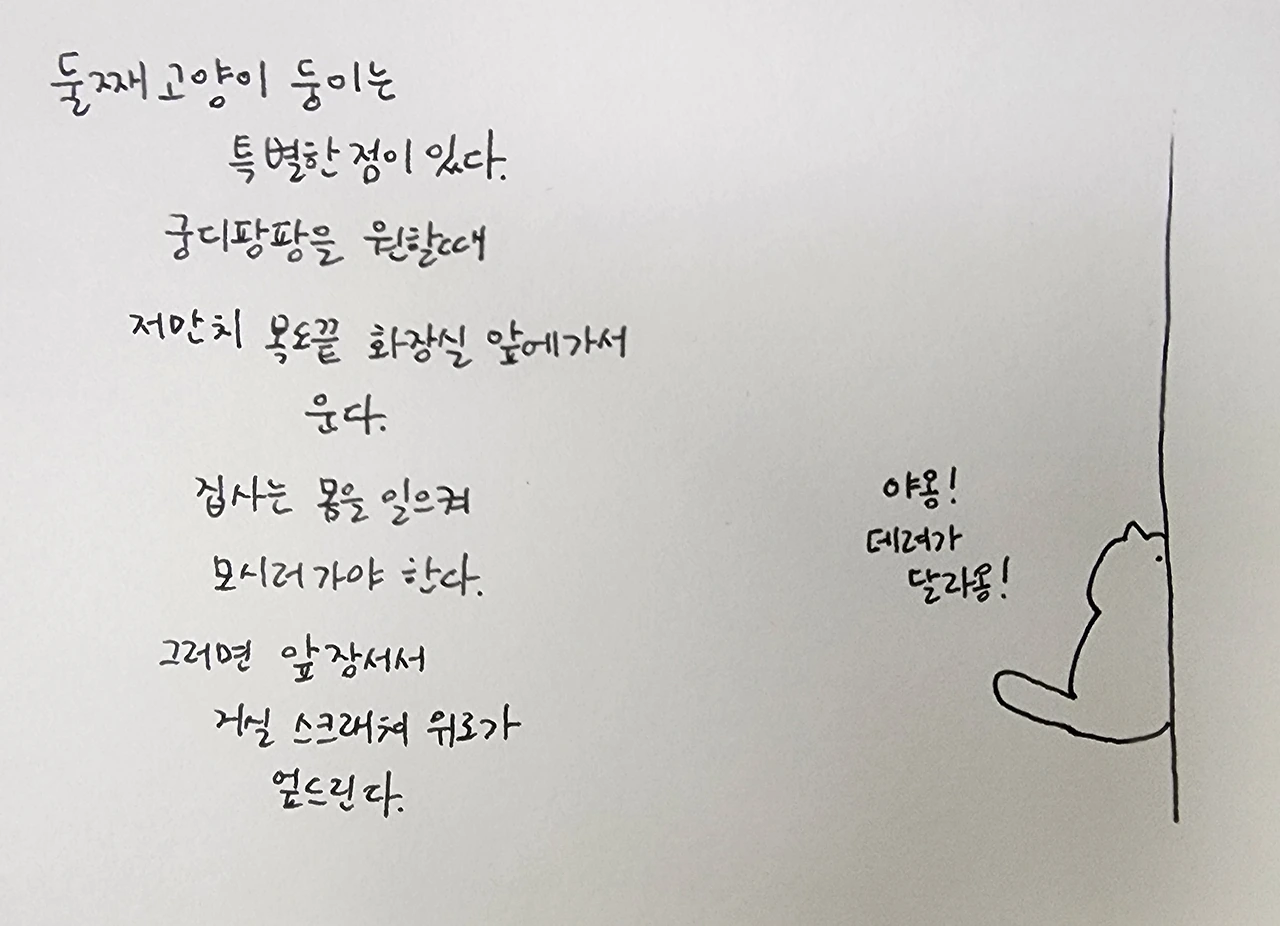 둘째고양이 둥이는
특별한점이 있다.
궁디팡팡을 원할때
저만치 복도끝 화장실 앞에가서
운다.
집사는 몸을 일으켜
모시러가야 한다.
그러면 앞장서서
거실 스크래쳐 위로가
엎드린다.
야옹!
데려가
달라옹!